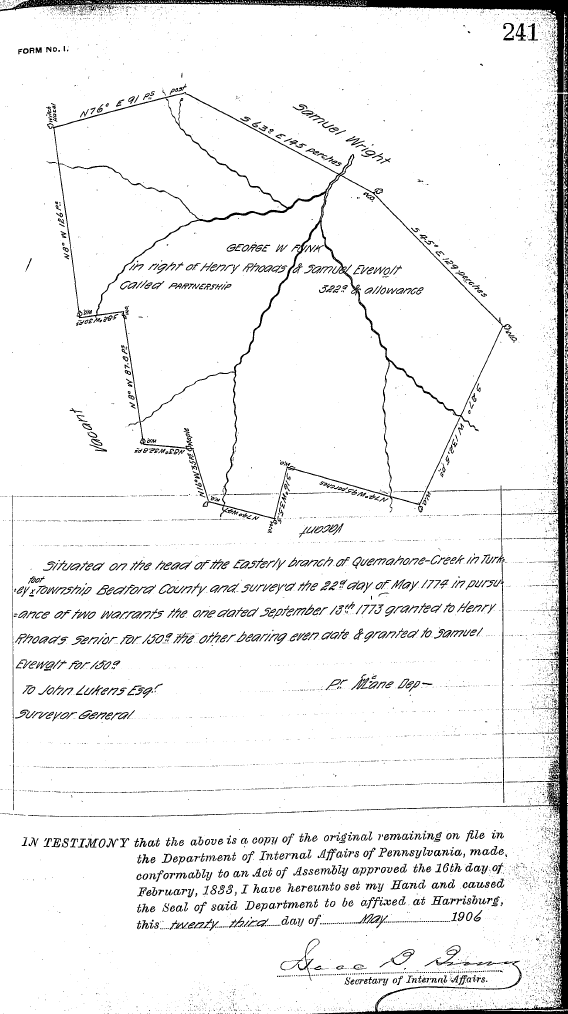 241
FORM No. 1.
White Wood
N 76° E 91 Ps
post
S 63° E 145 perches
Samuel Wright
W.O.
N 8° W 126 Ps
S 45° E 129 perches
GEORGE W FUNK
in right of Henry Rhoads & Samuel Evewolt
Called PARTNERSHIP
322ª & allowance
W.O.
W.O.
N 8° W 87.8 Ps
S 27° W 132.5 Ps
Vacant
W.O.
Maple
W.O.
W.O.
N 79° W 95 perches
W.O.
Vacant
Situated on the head of the Easterly branch of Quemahone-Creek in Turk-
ey foot Township Bedford County and survey'd the 22ᵈ day of May 1774 in pursu-
=ance of two warrants the one dated September 13th 1773 granted to Henry
Rhoads Senior for 150ª the other bearing even date & granted to Samuel
Evewalt for 150ª
To John Lukens Esqr
Pr McLane Dep—
Surveyor General
IN TESTIMONY that the above is a copy of the original remaining on file in
the Department of Internal Affairs of Pennsylvania, made,
conformably to an Act of Assembly approved the 16th day of
February, 1833, I have hereunto set my Hand and caused
the Seal of said Department to be affixed at Harrisburg,
this twenty third day of May 1906
Isaac B. Brown
Secretary of Internal Affairs.